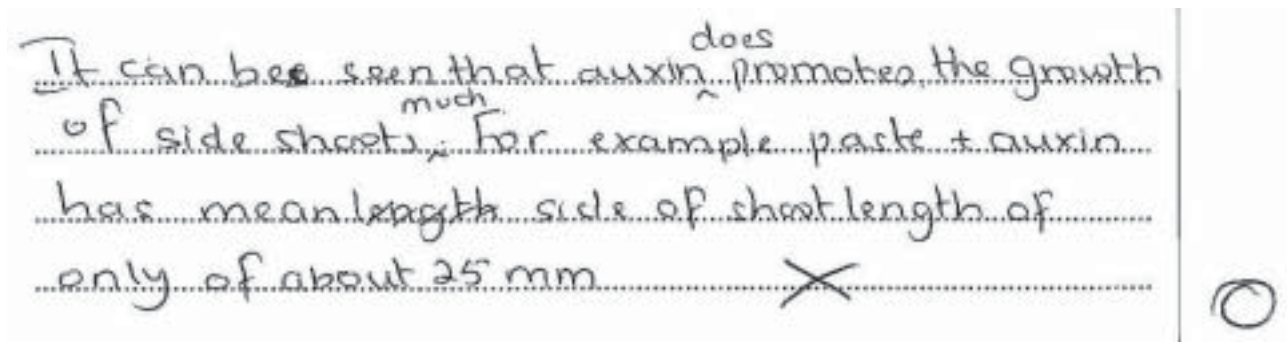 It can be seen that auxin does promotes the growth
of side shoots much. For example paste + auxin
has mean length side of shoot length of
only of about 25 mm
0